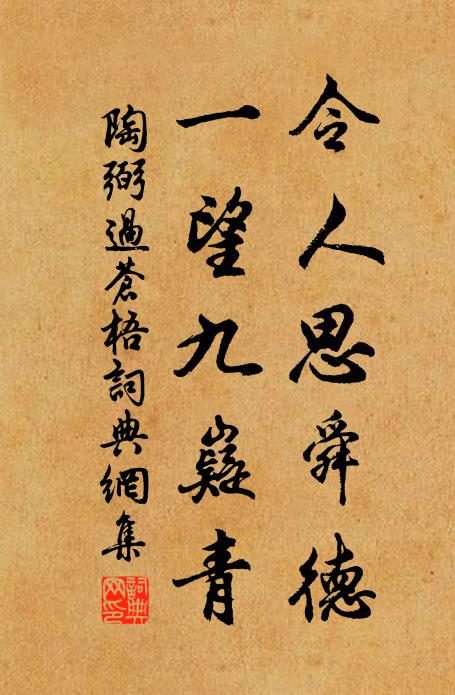 令人思舜德
一望九嶷青
陶弼過蒼梧詞典網集
詞典
网印